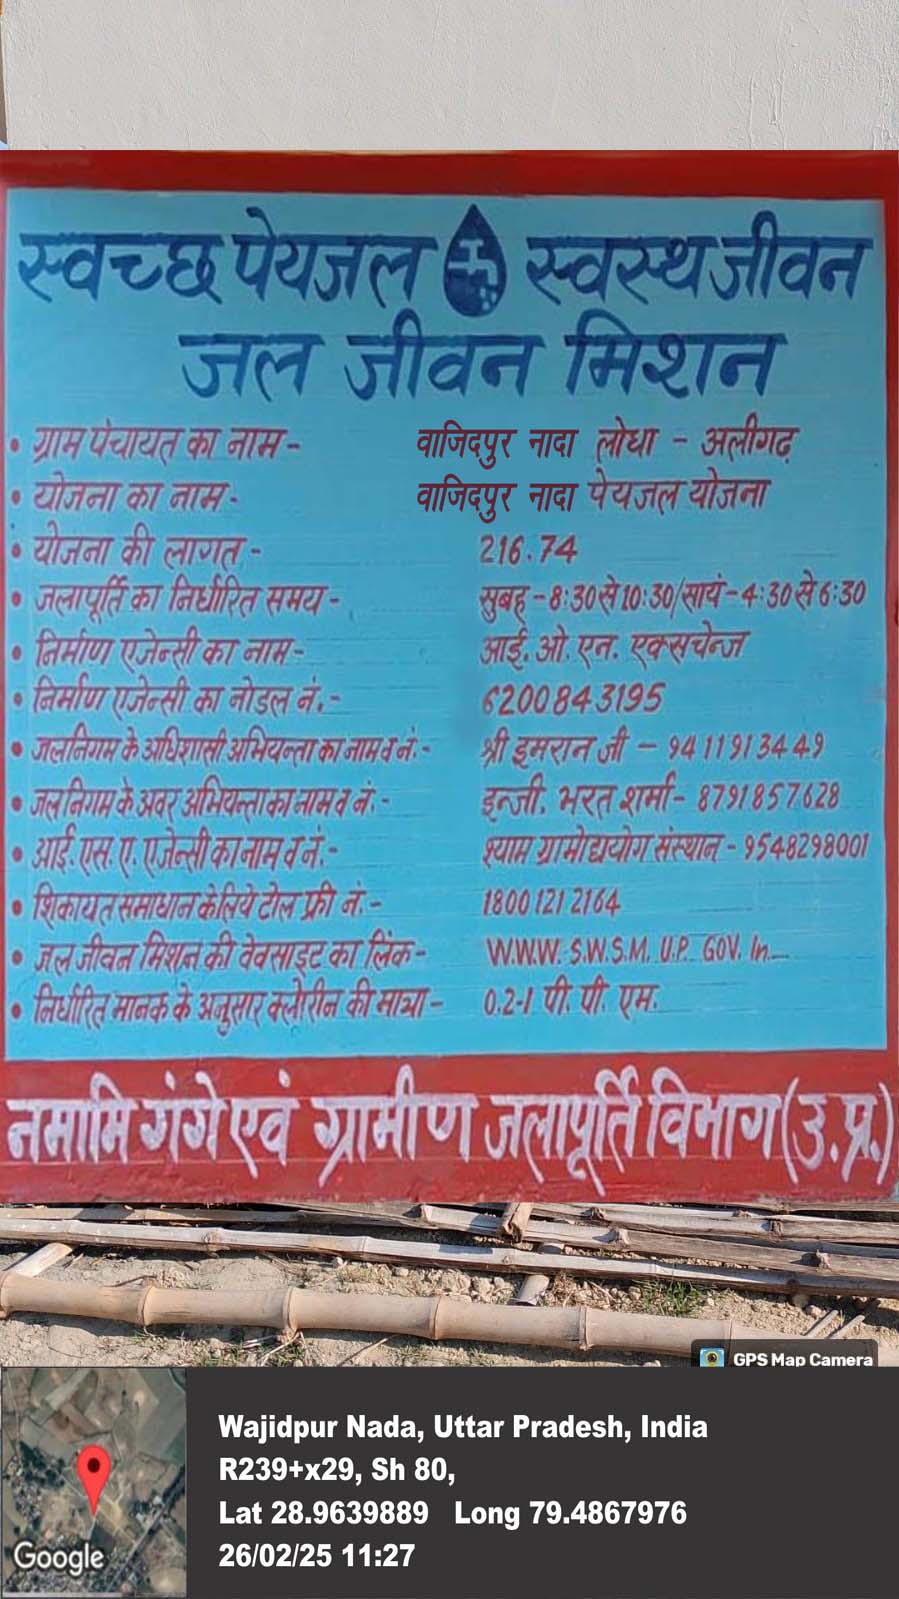 स्वच्छ पेयजल स्वस्थ जीवन
जल जीवन मिशन
• ग्राम पंचायत का नाम - वाजिदपुर नादा लोधा - अलीगढ़
• योजना का नाम - वाजिदपुर नादा पेयजल योजना
• योजना की लागत - 216.74
• जलापूर्ति का निर्धारित समय - सुबह - 8:30 से 10:30/सायं - 4:30 से 6:30
• निर्माण एजेन्सी का नाम - आई. ओ. एन. एक्सचेन्ज
• निर्माण एजेन्सी का नोडल नं. - 6200843195
• जलनिगम के अधिशासी अभियन्ता का नाम व नं. - श्री इमरान जी - 9411913449
• जल निगम के अवर अभियन्ता का नाम व नं. - इन्जी. भरत शर्मा - 8791857628
• आई. एस. ए. एजेन्सी का नाम व नं. - श्याम ग्रामोद्ययोग संस्थान - 9548298001
• शिकायत समाधान के लिये टोल फ्री नं. - 1800 121 2164
• जल जीवन मिशन की वेवसाइट का लिंक - W.W.W. S.W.S.M. U.P. GOV. In
• निर्धारित मानक के अनुसार क्लोरीन की मात्रा - 0.2-1 पी. पी. एम.
नमामि गंगे एवं ग्रामीण जलापूर्ति विभाग (उ.प्र.)
GPS Map Camera
Wajidpur Nada, Uttar Pradesh, India
R239+x29, Sh 80,
Lat 28.9639889 Long 79.4867976
26/02/25 11:27
Google